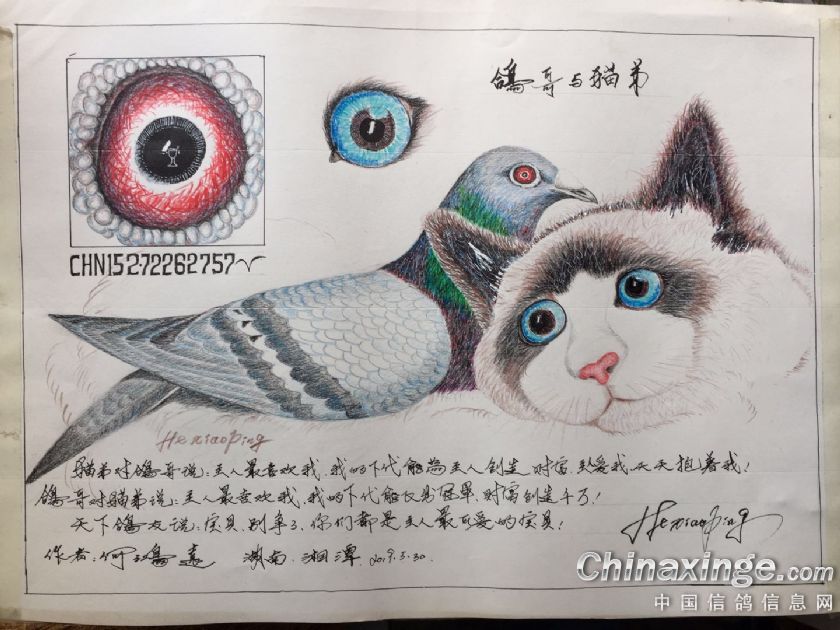 鴿哥与貓弟
CHN15-272262757
Hexiaoping
貓弟对鴿哥说：主人最喜欢我，我的下代能為主人创造财富，主爱我，天天抱着我！
鴿哥对貓弟说：主人最喜欢我，我的下代能夺冠军，财富创造千万！
天下鴿友说：宝贝，别争了，你们都是主人最可爱的宝贝！
Hexiaoping
作者：何 鴿 湖南 湘潭 2019.5.30.
Chinaxinge.com
中国信鸽信息网